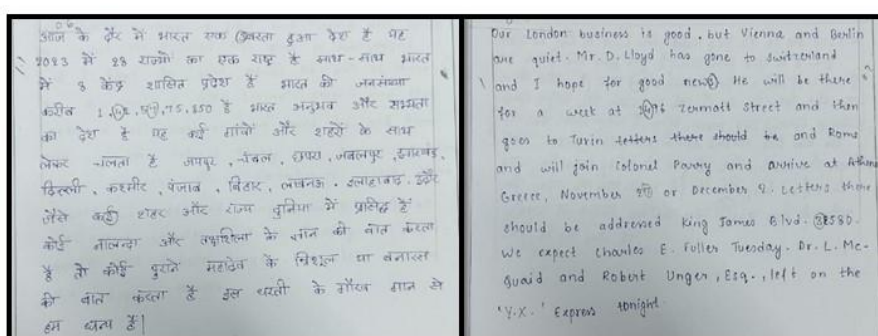 आज के दौर में भारत एक उभरता हुआ देश है यह
2023 में 28 राज्यों का एक राष्ट्र है साथ-साथ भारत
में 8 केंद्र शासित प्रदेश हैं भारत की जनसंख्या
करीब 1, 75,250 है भारत अनुभव और सभ्यता
का देश है यह कई गांवों और शहरों के साथ
लेकर चलता है जयपुर, चंबल, छपरा, जबलपुर, झारखंड,
दिल्ली, कश्मीर, पंजाब, बिहार, लखनऊ, इलाहाबाद, इंदौर
जैसे कई शहर और राज्य दुनिया में प्रसिद्ध हैं
कोई नालन्दा और तक्षशिला के ज्ञान की बात करता
है तो कोई पुराने महादेव के त्रिशूल या बनारस
की बात करता है इस धरती के गौरव गान से
हम धन्य हैं|
Our London business is good, but Vienna and Berlin
are quiet. Mr. D. Lloyd has gone to switzerland
and I hope for good news. He will be there
for a week at Zermatt street and then
goes to Turin and Rome
and will join Colonel Parry and arrive at Athens
Greece, November or December 2. Letters there
should be addressed King James Blvd. 3580.
We expect Charles E. Fuller Tuesday. Dr. L. Mc-
Quaid and Robert Unger, Esq., left on the
'Y.X.' Express tonight.